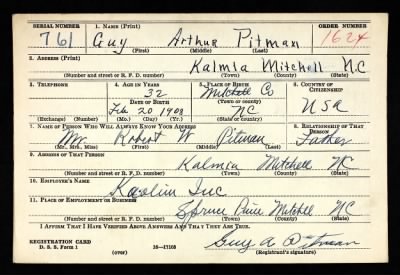 SERIAL NUMBER 1. NAME (Print) ORDER NUMBER
761 Guy Arthur Pitman 1624
(First) (Middle) (Last)
2. ADDRESS (Print)
Kalmia Mitchell N.C
(Number and street or R. F. D. number) (Town) (County) (State)
3. TELEPHONE 4. AGE IN YEARS 5. PLACE OF BIRTH 6. COUNTRY OF CITIZENSHIP
32 Mitchell Co
DATE OF BIRTH (Town or county)
Feb 20 1908 NC USA
(Exchange) (Number) (Mo.) (Day) (Yr.) (State or country)
7. NAME OF PERSON WHO WILL ALWAYS KNOW YOUR ADDRESS 8. RELATIONSHIP OF THAT PERSON
Mr Robert W Pitman Father
(Mr., Mrs., Miss) (First) (Middle) (Last)
9. ADDRESS OF THAT PERSON
Kalmia Mitchell NC
(Number and street or R. F. D. number) (Town) (County) (State)
10. EMPLOYER'S NAME
Kaolin Inc
11. PLACE OF EMPLOYMENT OR BUSINESS
Spruce Pine Mitchell NC
(Number and street or R. F. D. number) (Town) (County) (State)
I AFFIRM THAT I HAVE VERIFIED ABOVE ANSWERS AND THAT THEY ARE TRUE.
REGISTRATION CARD
D. S. S. Form 1 (over) 16—17105 Guy A Pitman
(Registrant's signature)